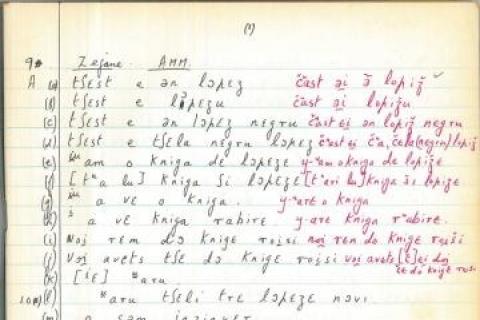 (1)
9. Zejane. AMM.
A (a) tʃest e ən lɔpez čast əi ə̆ lopiž
(b) tʃest e lɔpezu čast əi lopižu
(c) tʃest e ən lɔpez negru čast ei ən lopiž negru
(d) tʃest e tʃela negru lɔpez čast ei č'a, čela (negru) lopiž
(e) am o kniga de lɔpeze y-ᵘam o kniga de lopiže
(f) [tᵘa lu] kniga ʃi lɔpeze [t'ari lu] kniga ši lopiže
(g) a ve o kniga. y-ᵘare o kniga
(h) a ve kniga rabire y-are kniga r'abire.
(i) Noj rem dɔ knige rojsi noi ren do knige roiši
(j) Voj avets tʃe dɔ knige rojsi voi avets [č]ei doj
če do knige roiši
(k) [iE] ᵘaru
(l) ᵘaru tʃeli tre lɔpeze novi
(m) o sam